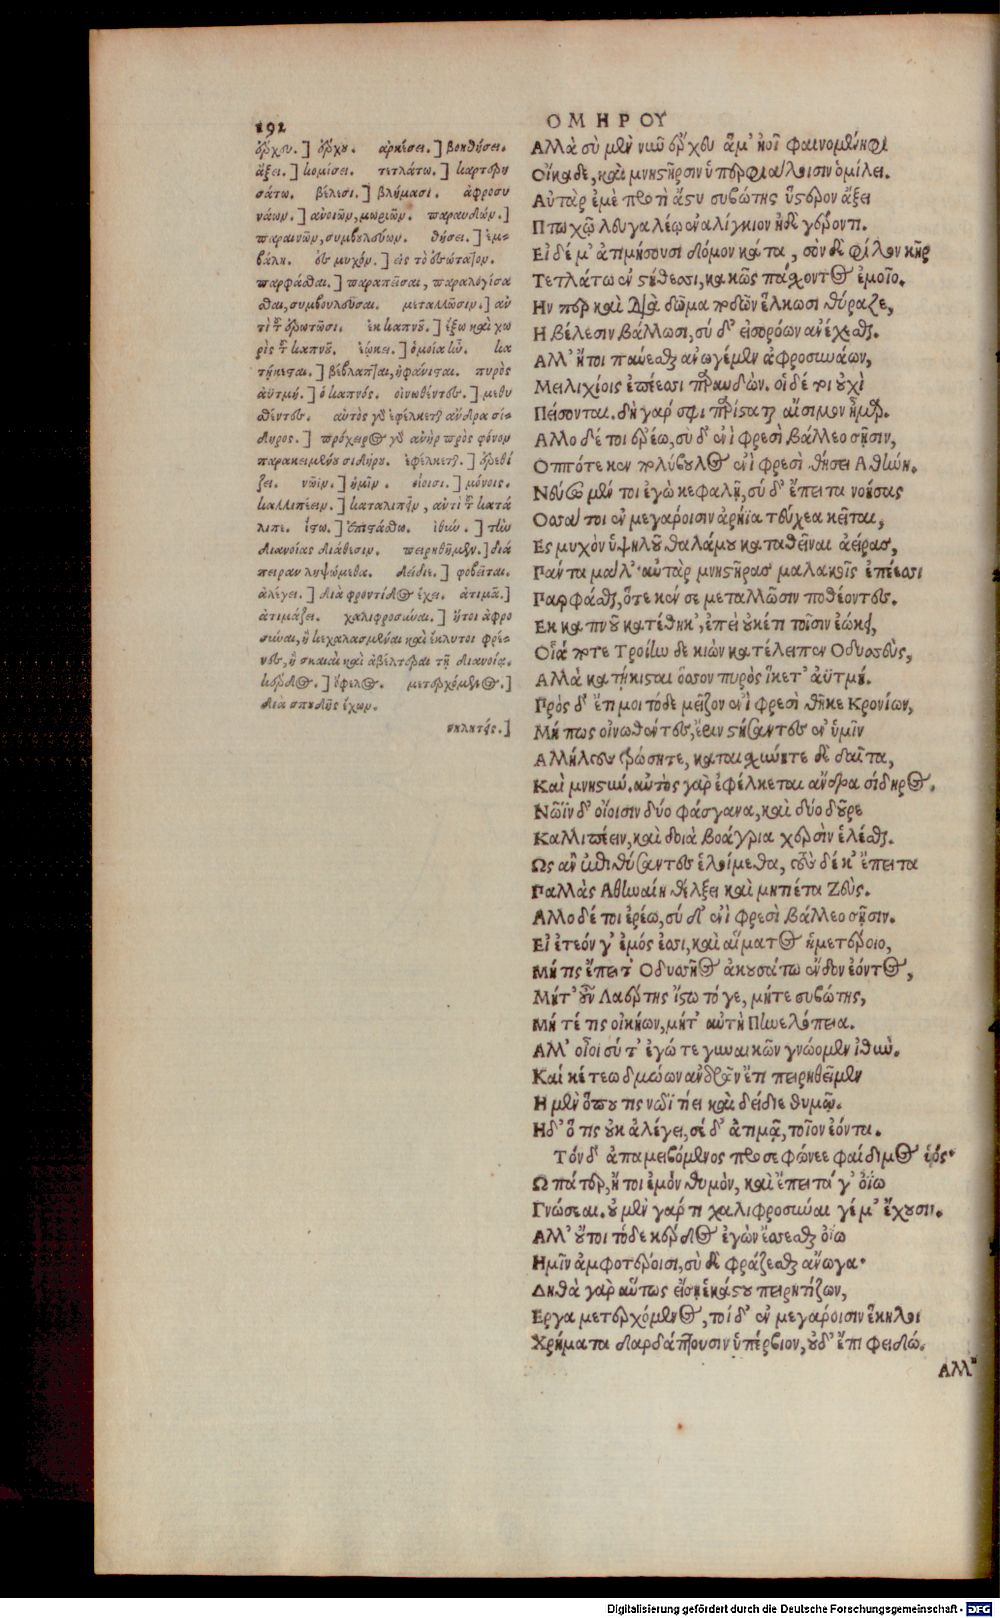 192
ΟΜΗΡΟΥ
ὄρχου.] ὄρχου. ἀρκέσει.] βοηθήσει.
ἄξει.] κομίσει. τετλάτω.] καρτερη
σάτω. βέλεσι.] βλήμασι. ἀφροσυ
νάων.] ἀνοιῶν, μωριῶν. παραυδῶν.]
παραινῶν, συμβουλεύων. θήσει.] ἐμ-
βάλῃ. ἐς μυχόν.] εἰς τὸ ἐσώτατον.
παρφάσθαι.] παραπεῖσαι, παραλογίσα
σθαι, συμβουλεῦσαι. μεταλλῶσιν.] ἀν
τὶ τοῦ ἐρωτῶσι. ἐκ καπνοῦ.] ἔξω καὶ χω
ρὶς τοῦ καπνοῦ. ἐῴκει.] ὁμοία ἦν. κα
τῄκισται.] βέβλαπται, ἠφάνισται. πυρὸς
ἀϋτμή.] ὁ καπνός. οἰνωθέντες.] μεθυ
σθέντες. αὐτὸς γὰρ ἐφέλκεται ἄνδρα σί-
δηρος.] πρόχειρος γὰρ ἀνὴρ πρὸς φόνον
παρακειμένου σιδήρου. ἐφέλκεται.] ἐρεθί
ζει. νῶϊν.] ἡμῖν. οἴοισι.] μόνοις.
καλλιπέειν.] καταλιπεῖν, ἀντὶ τοῦ κατά
λιπε. ἴστω.] ἐπιστάσθω. ἰθύν.] τὴν
διανοίας διάθεσιν. πειρηθῆμεν.] διά
πειραν ληψόμεθα. δείδιε.] φοβεῖται.
ἀλέγει.] διὰ φροντίδος ἔχει. ἀτιμᾷ.]
ἀτιμάζει. χαλιφροσύναι.] ἤτοι ἀφρο
σύναι, ἢ κεχαλασμέναι καὶ ἔκλυτοι φρέ-
νες, ἢ σκαιαὶ καὶ ἀβέλτεραι τῇ διανοίᾳ.
κέρδος.] ὄφελος. μετερχόμενος.]
διὰ σπουδῆς ἔχων.
νηλητές.]
Αλλὰ σὺ μὲν νῦν ἔρχευ ἅμ' ἠοῖ φαινομένηφι
Οἴκαδε, καὶ μνηστῆρσιν ὑπερφιάλοισιν ὁμίλει.
Αὐτὰρ ἐμὲ προτὶ ἄστυ συβώτης ὕστερον ἄξει
Πτωχῷ λευγαλέῳ ἐναλίγκιον ἠδὲ γέροντι.
Εἰ δέ μ' ἀτιμήσουσι δόμον κάτα, σὸν δὲ φίλον κῆρ
Τετλάτω ἐν στήθεσσι, κακῶς πάσχοντος ἐμοῖο.
Ην περ καὶ διὰ δῶμα ποδῶν ἕλκωσι θύραζε,
Η βέλεσιν βάλλωσι, σύ δ' εἰσορόων ἀνέχεσθαι.
Αλλ' ἤτοι παύεσθαι ἀνωγέμεν ἀφροσυνάων,
Μειλιχίοις ἐπέεσσι παραυδῶν. οἱ δέ τοι οὐχὶ
Πείσονται. δὴ γάρ σφι παρίσταται αἴσιμον ἦμαρ.
Αλλο δέ τοι ἐρέω, σὺ δ' ἐνὶ φρεσὶ βάλλεο σῇσιν,
Οππότε κεν πολύβουλος ἐνὶ φρεσὶ θήσει Αθήνη.
Νεύσω μέν τοι ἐγὼ κεφαλῇ, σύ δ' ἔπειτα νοήσας
Οσσα τοι ἐν μεγάροισιν ἀρήϊα τεύχεα κεῖται,
Ες μυχὸν ὑψηλοῦ θαλάμου καταθεῖναι ἀείρας,
Πάντα μάλ'· αὐτὰρ μνηστῆρας μαλακοῖς ἐπέεσσι
Παρφάσθαι, ὅτε κέν σε μεταλλῶσιν ποθέοντες.
Εκ καπνοῦ κατέθηκ', ἐπεὶ οὐκέτι τοῖσιν ἐῴκει,
Οἷά ποτε Τροίην δε κιὼν κατέλειπεν Οδυσσεὺς,
Αλλὰ κατῄκισται ὅσσον πυρὸς ἵκετ' ἀϋτμή.
Πρὸς δ' ἔτι μοι τόδε μεῖζον ἐνὶ φρεσὶ θῆκε Κρονίων,
Μή πως οἰνωθέντες, ἔριν στήσαντες ἐν ὑμῖν
Αλλήλους τρώσητε, καταισχύνητε δὲ δαῖτα,
Καὶ μνηστύν. αὐτὸς γὰρ ἐφέλκεται ἄνδρα σίδηρος.
Νῶϊν δ' οἴοισιν δύο φάσγανα, καὶ δύο δοῦρε
Καλλιπέειν, καὶ δοιὰ βοάγρια χερσὶν ἑλέσθαι.
Ως ἂν ἐπιθύσαντες ἑλοίμεθα, τοὺς δέ κ' ἔπειτα
Παλλὰς Αθηναίη θέλξει καὶ μητιέτα Ζεύς.
Αλλο δέ τοι ἐρέω, σύ δ' ἐνὶ φρεσὶ βάλλεο σῇσιν.
Εἰ ἐτεόν γ' ἐμός ἐσσι, καὶ αἵματος ἡμετέροιο,
Μή τις ἔπειτ' Οδυσῆος ἀκουσάτω ἔνδον ἐόντος,
Μήτ' οὖν Λαέρτης ἴστω τό γε, μήτε συβώτης,
Μή τέ τις οἰκήων, μήτ' αὐτὴ Πηνελόπεια.
Αλλ' οἶοι σύ τ' ἐγώ τε γυναικῶν γνώομεν ἰθύν.
Καί κέ τεω δμώων ἀνδρῶν ἔτι πειρηθεῖμεν
Η μὲν ὅπου τις νῶϊ τίει καὶ δείδιε θυμῷ.
Ηδ' ὅ τις οὐκ ἀλέγει, σέ δ' ἀτιμᾷ, τοῖον ἐόντα.
Τόν δ' ἀπαμειβόμενος προσεφώνεε φαίδιμος υἱός·
Ω πάτερ, ἤτοι ἐμὸν θυμὸν, καὶ ἔπειτά γ' ὀΐω
Γνώσεαι. οὐ μὲν γάρ τι χαλιφροσύναι γέ μ' ἔχουσιν.
Αλλ' οὔτοι τόδε κέρδος ἐγὼν ἔσσεσθαι ὀΐω
Ημῖν ἀμφοτέροισι, σὺ δὲ φράζεσθαι ἄνωγα·
Δηθὰ γὰρ αὕτως εἴσῃ ἑκάστου πειρητίζων,
Εργα μετερχόμενος, τοί δ' ἐν μεγάροισιν ἕκηλοι
Χρήματα δαρδάπτουσιν ὑπέρβιον, οὐδ' ἔπι φειδώ.
Αλλ'
Digitalisierung gefördert durch die Deutsche Forschungsgemeinschaft - DFG